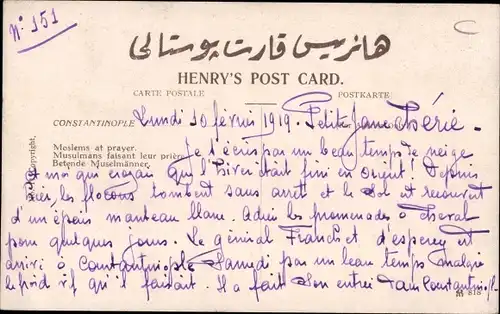 N° 151
C
هانريس قارت پوستالى
HENRY'S POST CARD.
CARTE POSTALE POSTKARTE
CONSTANTINOPLE Lundi 10 février 1919. Petite Jane Chérie.
Moslems at prayer.
Musulmans faisant leur prière.
Betende Muselmänner.
Copyright.
Je t'écris par un beau temps de neige
Et moi qui croyais que l'hiver était fini en Orient! Depuis
hier, les flocons tombent sans arrêt et le sol est recouvert
d'un épais manteau blanc. Adieu les promenades à cheval
pour quelques jours. Le général Franchet d'esperey est
arrivé à Constantinople Samedi par un beau temps malgré
le froid vif qu'il faisait. Il a fait son entrée dans Constantinople
M 818